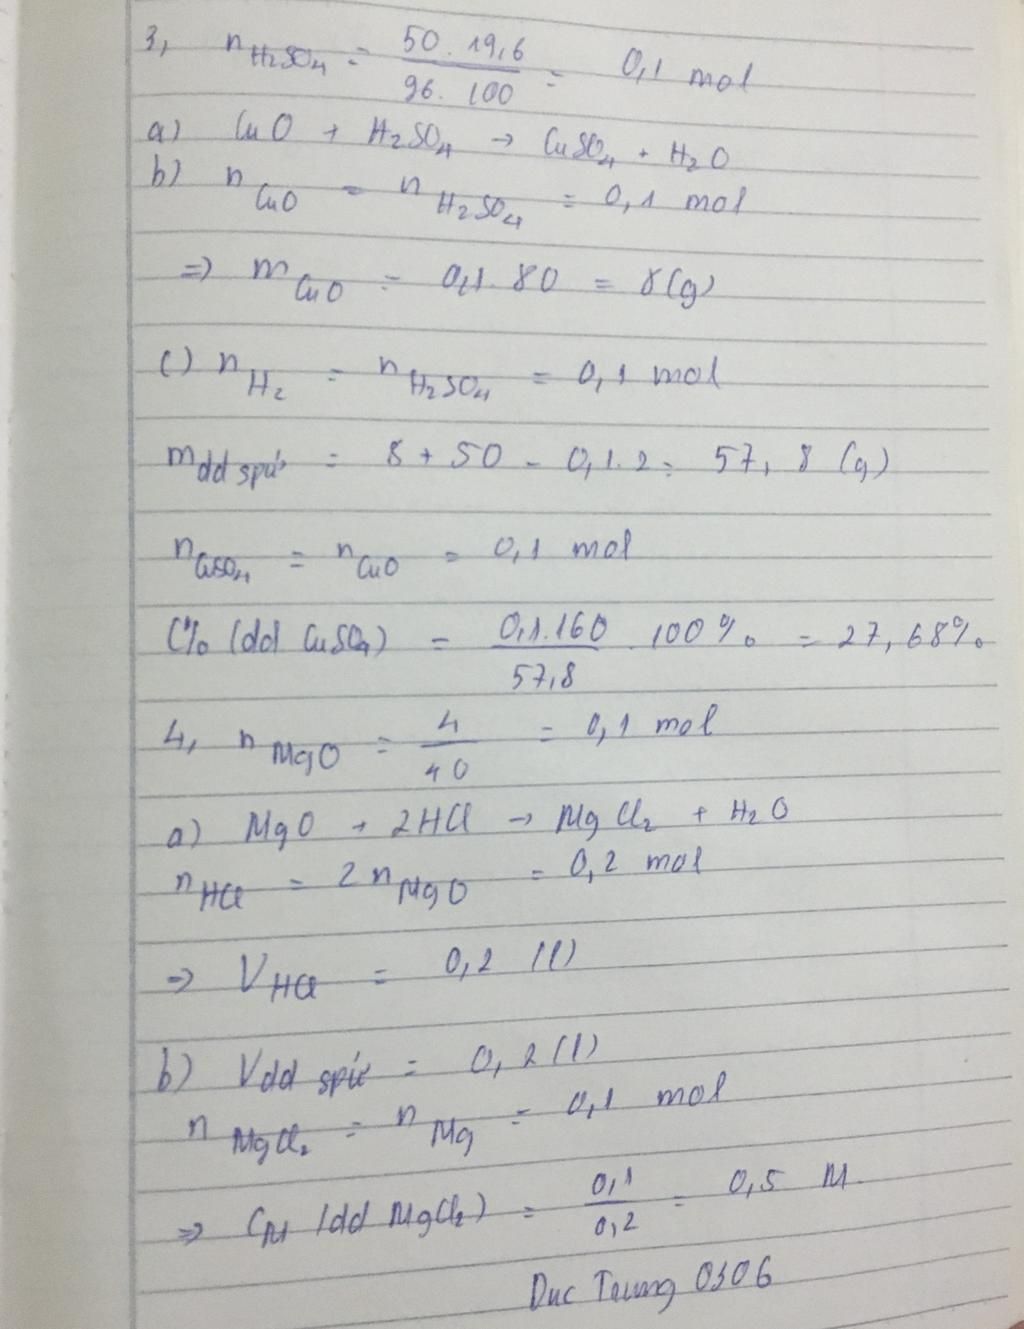 3, nH2SO4 = 50.19,6 / 96.100 = 0,1 mol
a) CuO + H2SO4 → CuSO4 + H2O
b) nCuO = nH2SO4 = 0,1 mol
=> mCuO = 0,1.80 = 8(g)
c) nH2 = nH2SO4 = 0,1 mol
mdd spứ = 8 + 50 - 0,1.2 = 57,8 (g)
nCuSO4 = nCuO = 0,1 mol
C% (dd CuSO4) = 0,1.160 / 57,8 . 100% = 27,68%
4, nMgO = 4 / 40 = 0,1 mol
a) MgO + 2HCl → MgCl2 + H2O
nHCl = 2nMgO = 0,2 mol
=> VHCl = 0,2 (l)
b) Vdd spứ = 0,2(l)
nMgCl2 = nMg = 0,1 mol
=> CM (dd MgCl2) = 0,1 / 0,2 = 0,5 M.
Duc Trung 0306